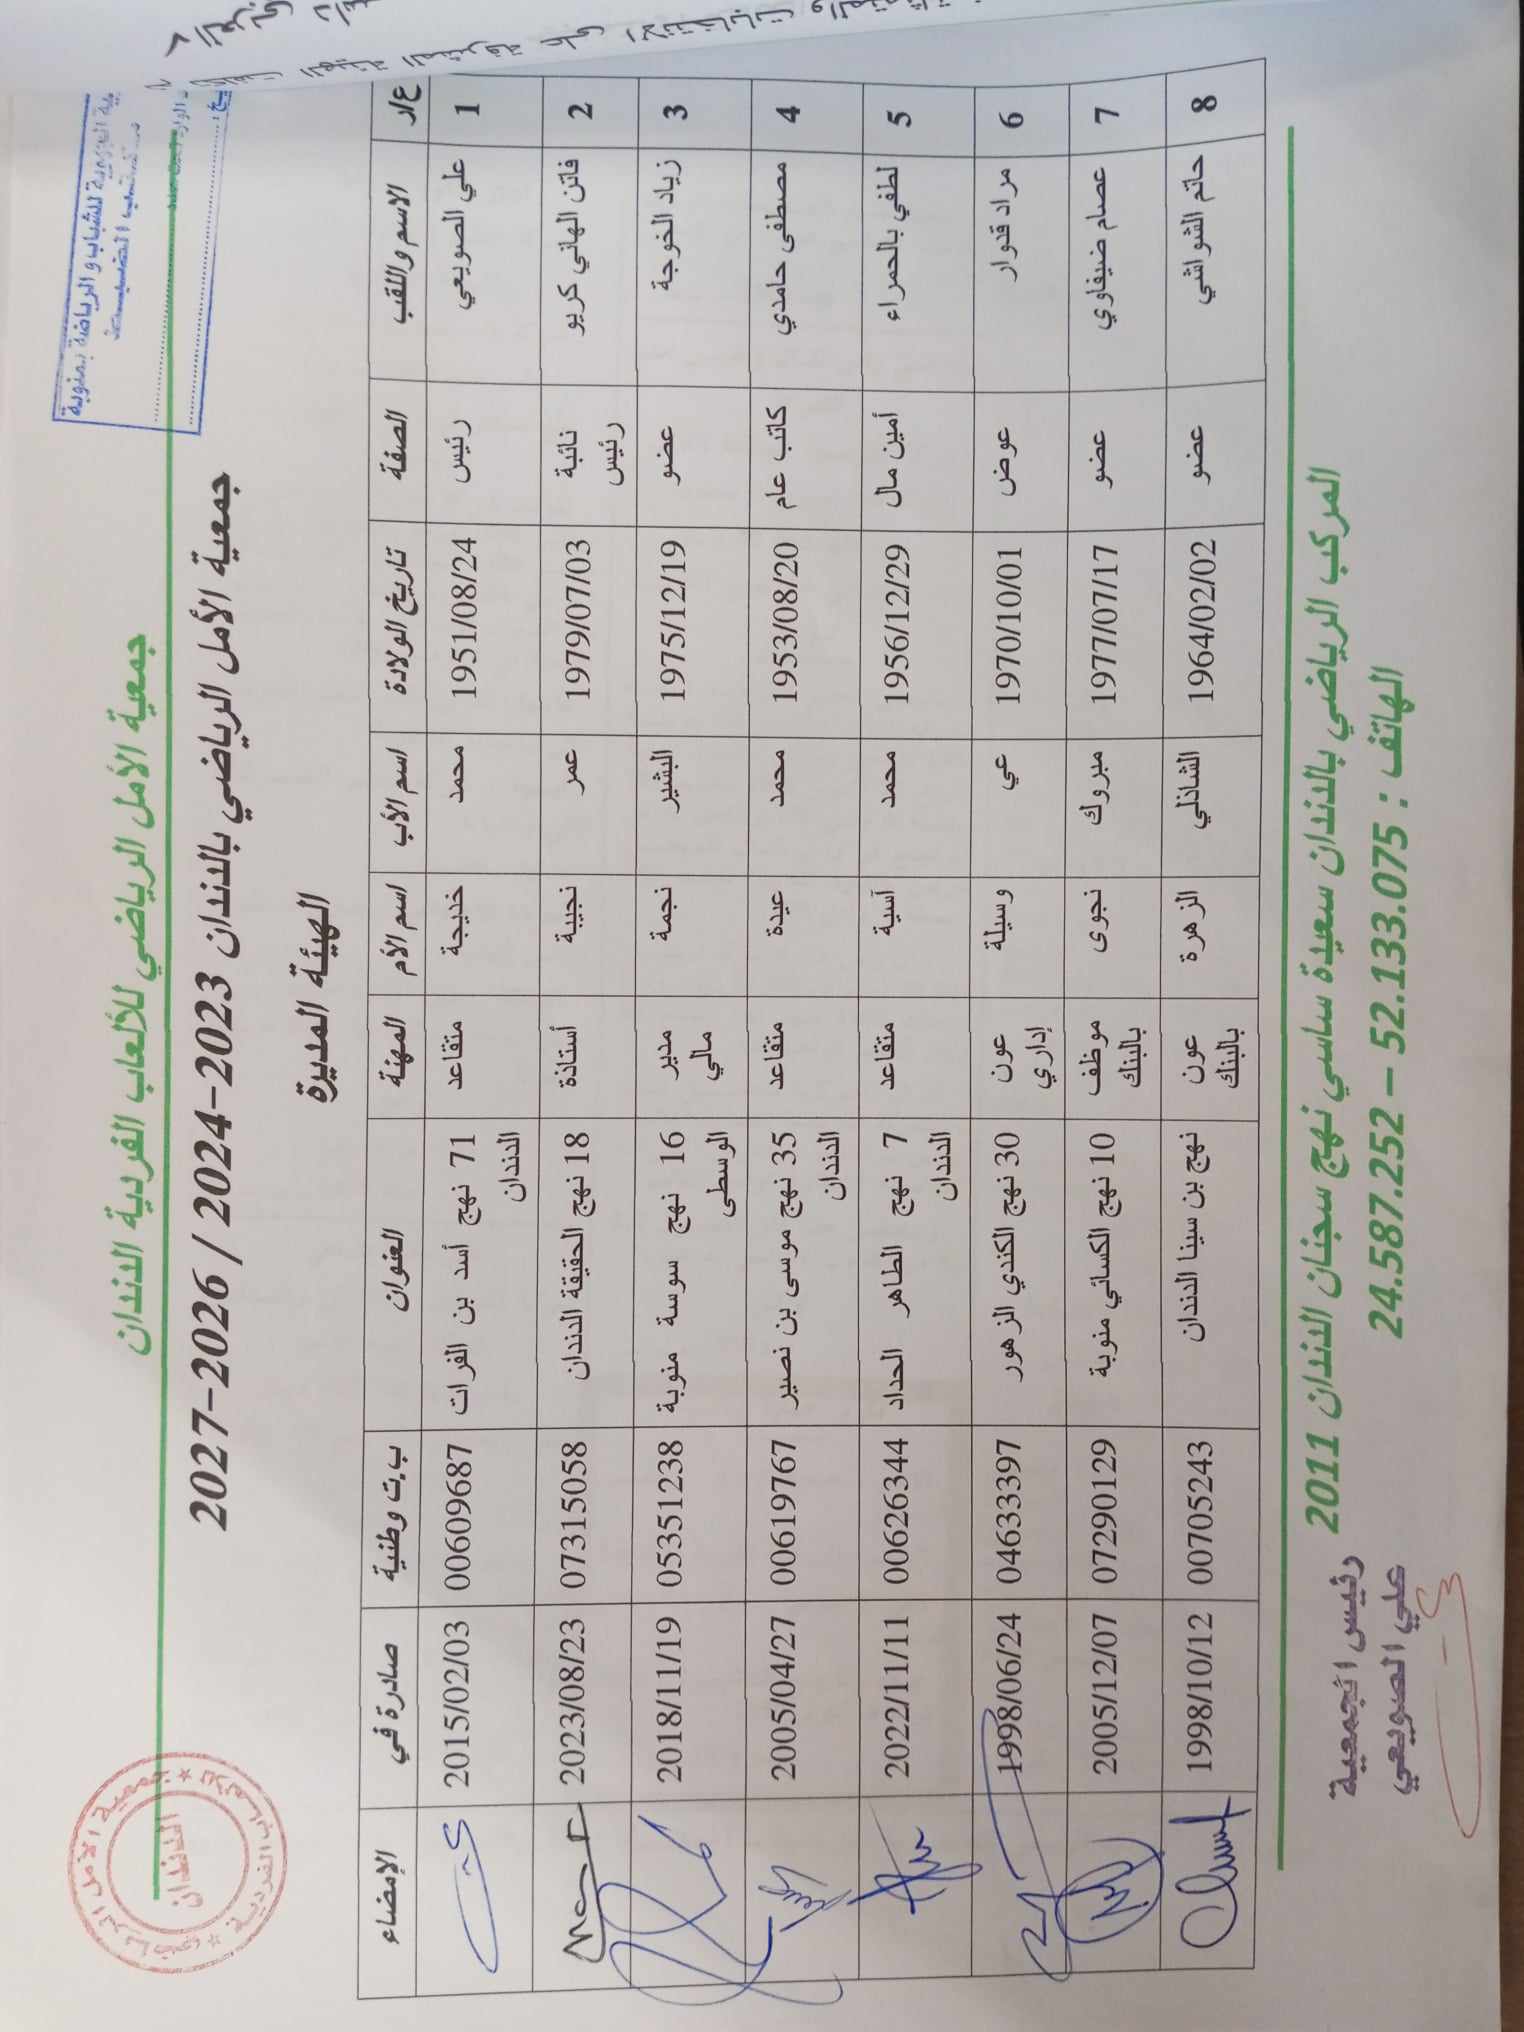 جمعية الأمل الرياضي للألعاب الفردية الدندان
للشباب والرياضة بمنوبة
جمعية الأمل الرياضي بالدندان 2023-2024 / 2026-2027
الهيئة المديرة
ع/ر الاسم واللقب الصفة تاريخ الولادة اسم الأب اسم الأم المهنة العنوان ب.ت وطنية صادرة في الإمضاء
1 علي الصويعي رئيس 1951/08/24 محمد خديجة متقاعد 71 نهج أسد بن الفرات الدندان 00609687 2015/02/03
2 فاتن الهاني كريو نائبة رئيس 1979/07/03 عمر نجيبة أستاذة 18 نهج الحقيقة الدندان 07315058 2023/08/23
3 زياد الخوجة عضو 1975/12/19 البشير نجمة مدير مالي 16 نهج سوسة منوبة الوسطى 05351238 2018/11/19
4 مصطفى حامدي كاتب عام 1953/08/20 محمد عيدة متقاعد 35 نهج موسى بن نصير الدندان 00619767 2005/04/27
5 لطفي بالحمراء أمين مال 1956/12/29 محمد آسية متقاعد 7 نهج الطاهر الحداد الدندان 00626344 2022/11/11
6 مراد قدوار عوض 1970/10/01 عي وسيلة عون إداري 30 نهج الكندي الزهور 04633397 1998/06/24
7 عصام ضيفاوي عضو 1977/07/17 مبروك نجوى موظف بالبنك 10 نهج الكسائي منوبة 07290129 2005/12/07
8 حاتم الشواشي عضو 1964/02/02 الشاذلي الزهرة عون بالبنك نهج بن سينا الدندان 00705243 1998/10/12
المركب الرياضي بالدندان سعيدة ساسي نهج سجنان الدندان 2011
الهاتف : 52.133.075 – 24.587.252
رئيس الجمعية
علي الصويعي
الدندان